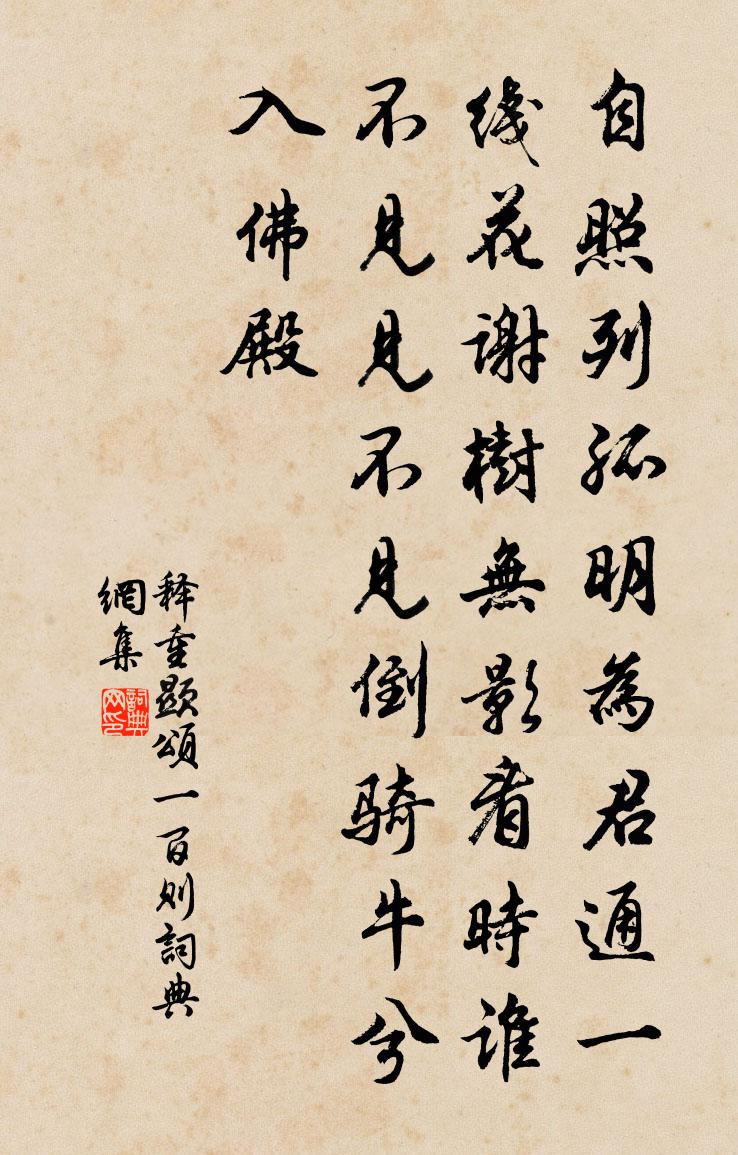 自照列孤明為君通一
綫花謝樹無影看時誰
不見見不見倒骑牛兮
入佛殿
释重顯頌一百则詞典
網集
詞典网印